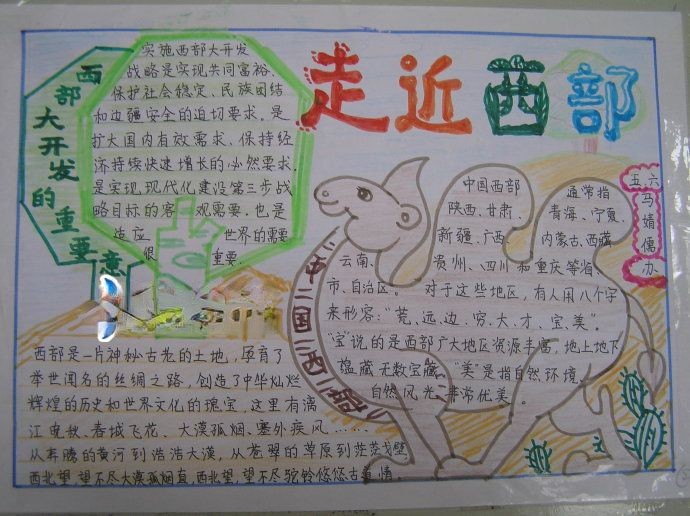 走近西部
西部大开发的重要意
实施西部大开发
战略是实现共同富裕、
保护社会稳定、民族团结
和边疆安全的迫切要求。是
扩大国内有效需求、保持经
济持续快速增长的必然要求。
是实现现代化建设第三步战
略目标的客观需要。也是
适应世界的需要
很重要.
五、六
马婧儒
办
中国西部通常指
陕西、甘肃、青海、宁夏、
新疆、广西、内蒙古、西藏
云南、贵州、四川和重庆等省、
市、自治区。对于这些地区，有人用八个字
来形容：“荒、远、边、穷、大、才、宝、美”。
“宝”说的是西部广大地区资源丰富，地上地下
蕴藏无数宝藏、“美”是指自然环境、
自然风光，非常优美。
中国西部
西部是一片神秘古老的土地，孕育了
举世闻名的丝绸之路，创造了中华灿烂
辉煌的历史和世界文化的瑰宝，这里有漓
江电秋、春城飞花、大漠孤烟、塞外疾风……
从奔腾的黄河到浩浩大漠，从苍翠的草原到茫茫戈壁，
西北望，望不尽大漠孤烟直，西北望，望不尽驼铃悠悠古道情。